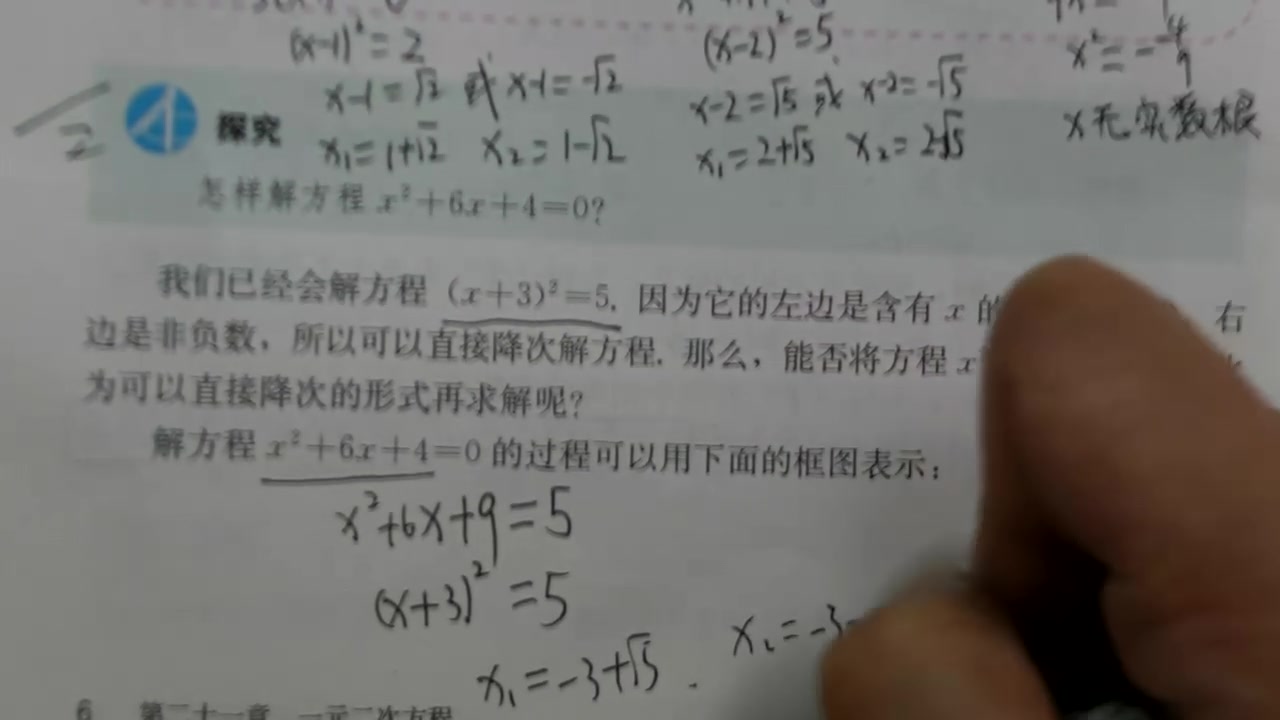 (x-1)²=2
(x-2)²=5
x²=-4/9
x-1=√2 或 x-1=-√2
x-2=√5 或 x-2=-√5
x无实数根
探究
x₁=1+√2 x₂=1-√2
x₁=2+√5 x₂=2-√5
怎样解方程 x²+6x+4=0?
我们已经会解方程 (x+3)²=5. 因为它的左边是含有 x 的 右
边是非负数，所以可以直接降次解方程. 那么，能否将方程 x
为可以直接降次的形式再求解呢?
解方程 x²+6x+4=0 的过程可以用下面的框图表示：
x²+6x+9=5
(x+3)²=5
x₁=-3+√5. x₂=-3-
6 第二十一章 一元二次方程